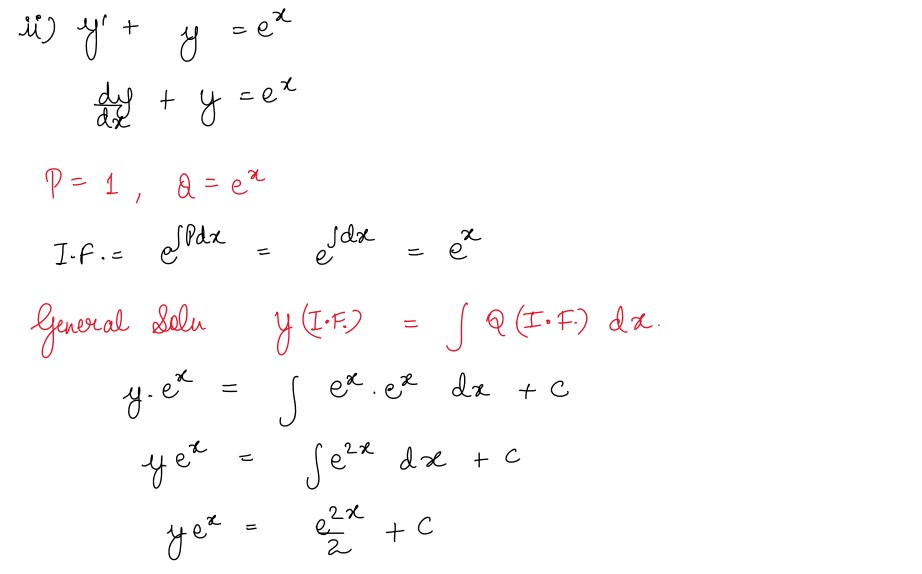 ii) y' + y = e^x
dy/dx + y = e^x
P = 1 , Q = e^x
I.F. = e^∫Pdx = e^∫dx = e^x
General Solu y (I.F.) = ∫ Q (I.F.) dx.
y . e^x = ∫ e^x . e^x dx + c
y e^x = ∫ e^2x dx + c
y e^x = e^2x/2 + C